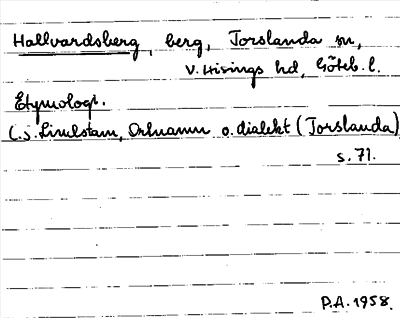 Hallvardsberg, berg, Torslanda sn,
V. Hisings hd, Göteb. l.
Etymologi.
C.S. Lindstam, Ortnamn o. dialekt (Torslanda)
s. 71.
P.A. 1958.